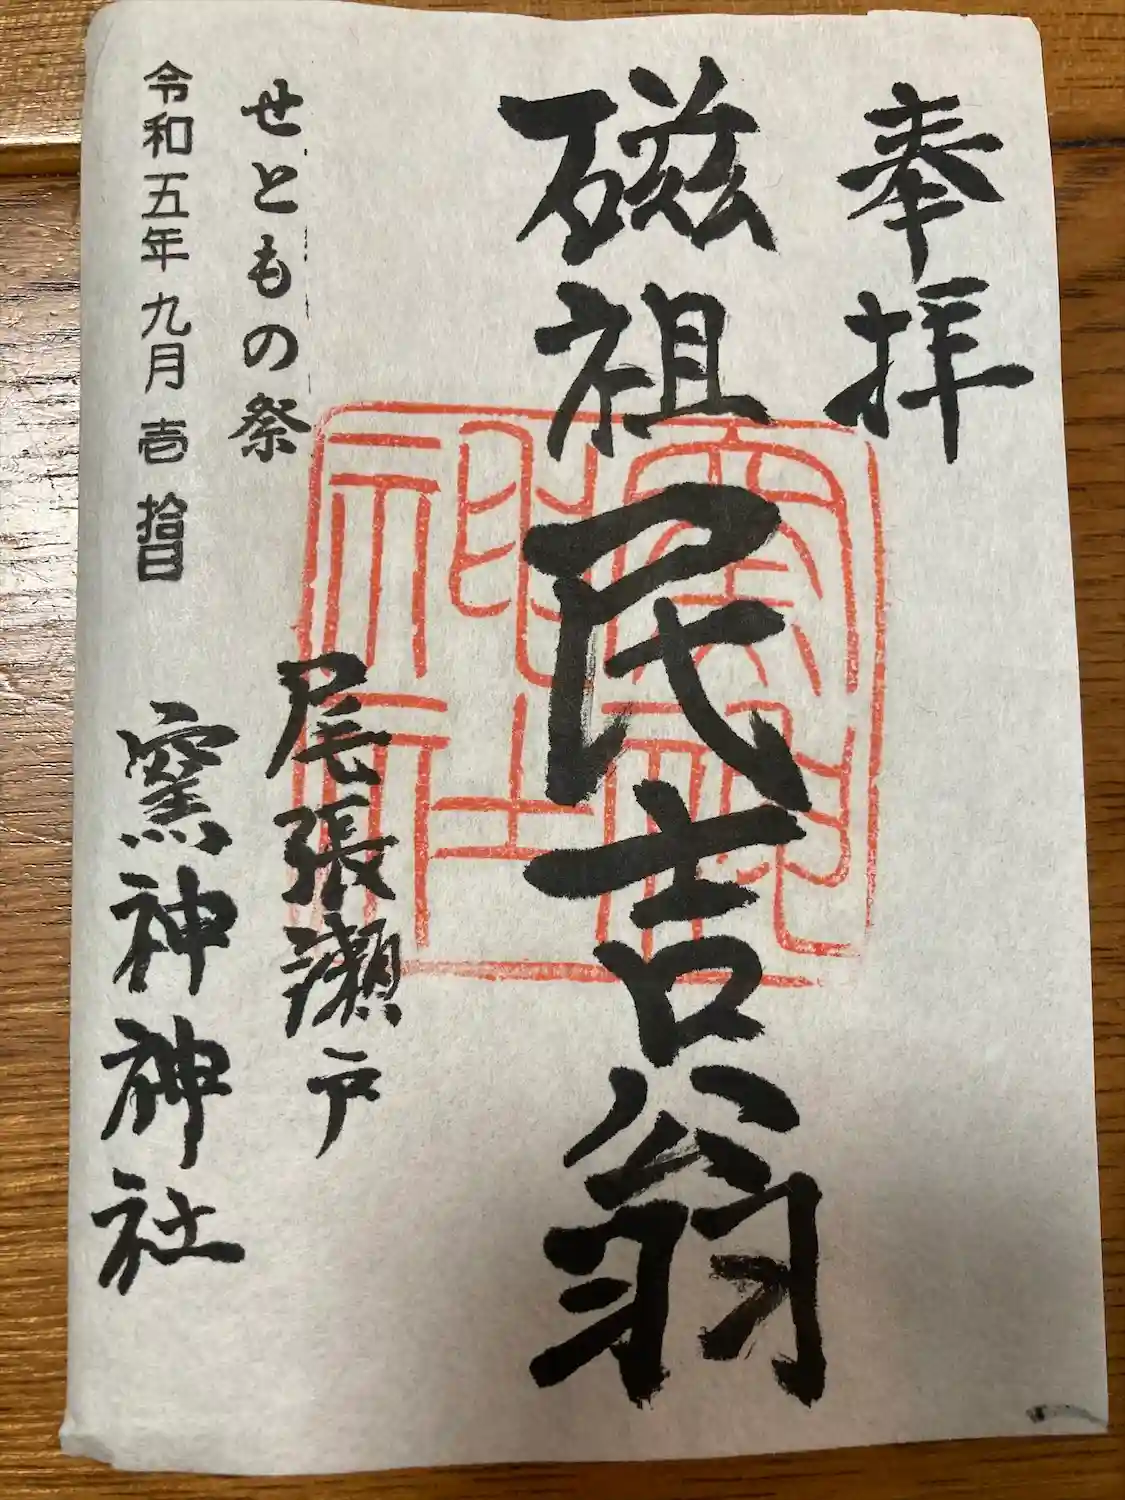 奉拝
磁祖民吉翁
尾張瀬戸
窯神神社
せともの祭
令和五年九月壱拾日
窯神
神社